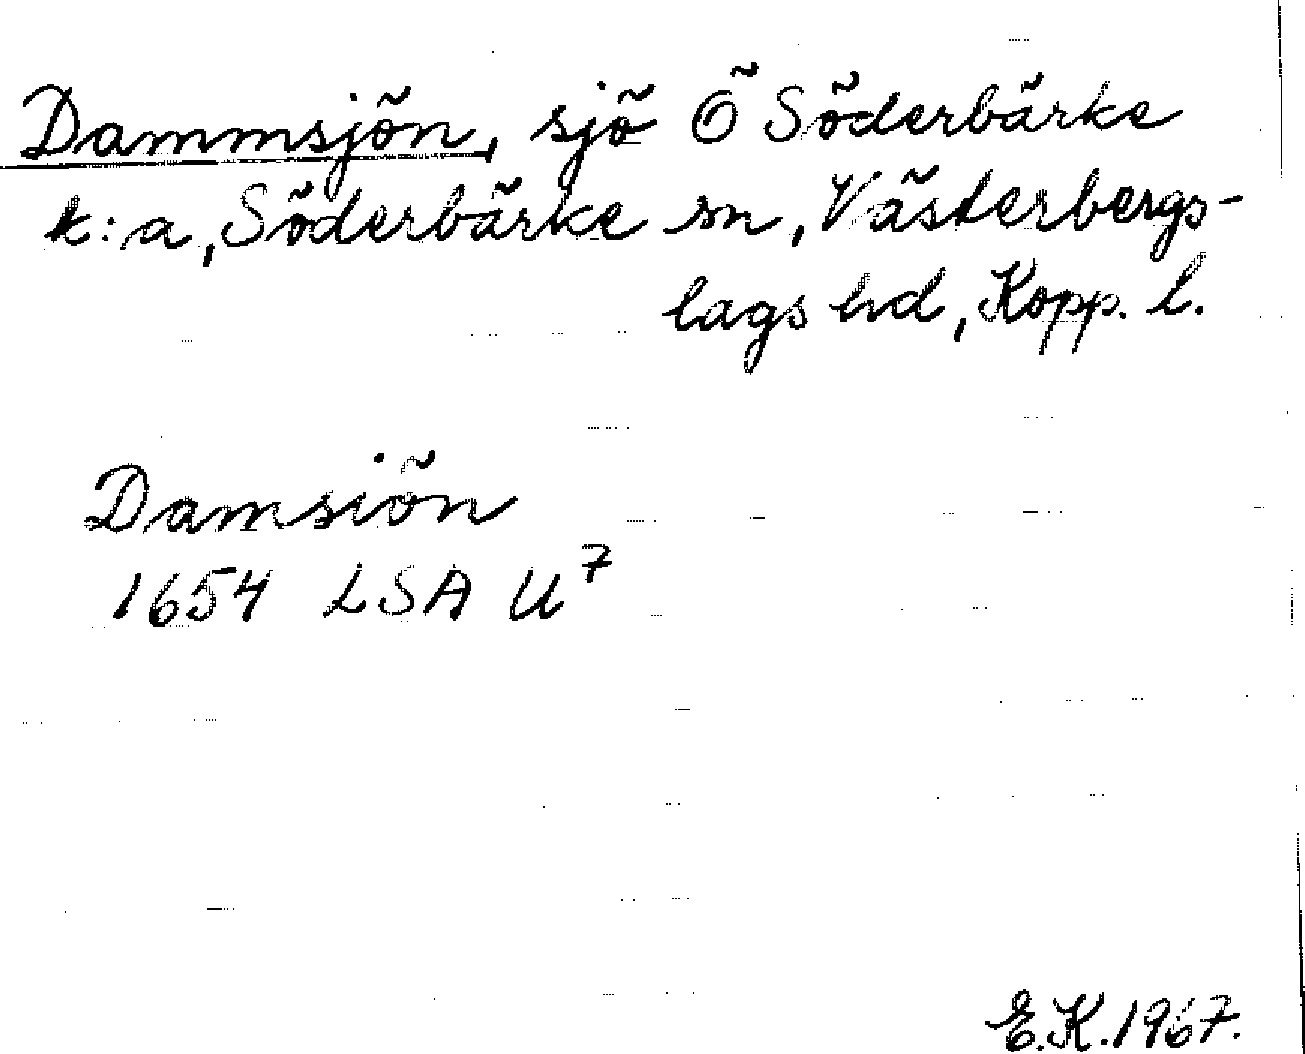 Dammsjön, sjö Ö Söderbärke
k:a, Söderbärke sn, Västerbergs-
lags hd, Kopp. l.
Damsiön
1654 LSA U⁷
E.K. 1967.